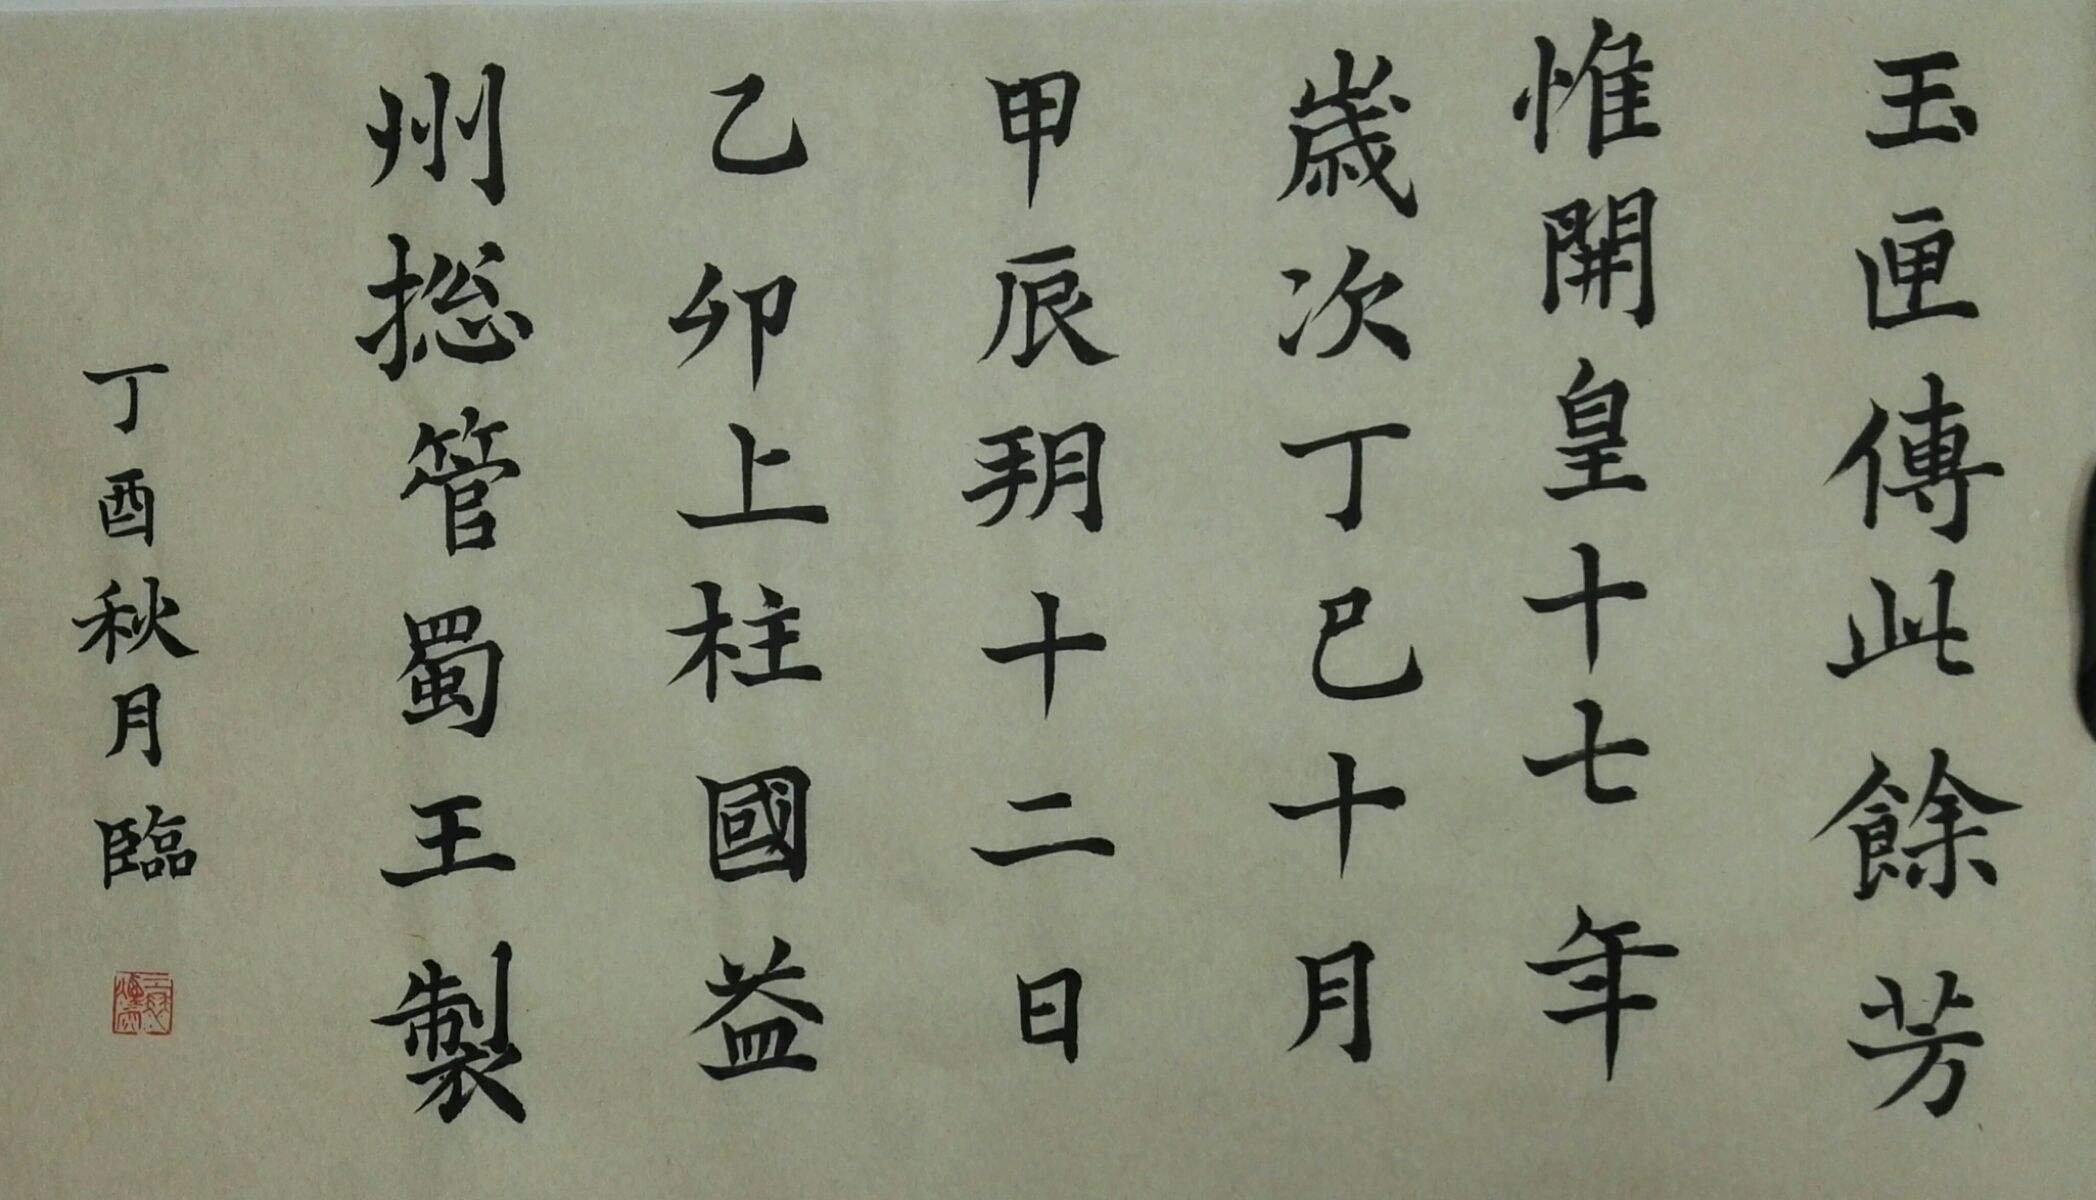 玉匣傳此餘芳
惟開皇十七年
歲次丁巳十月
甲辰朔十二日
乙卯上柱國益
州揔管蜀王製
丁酉秋月臨